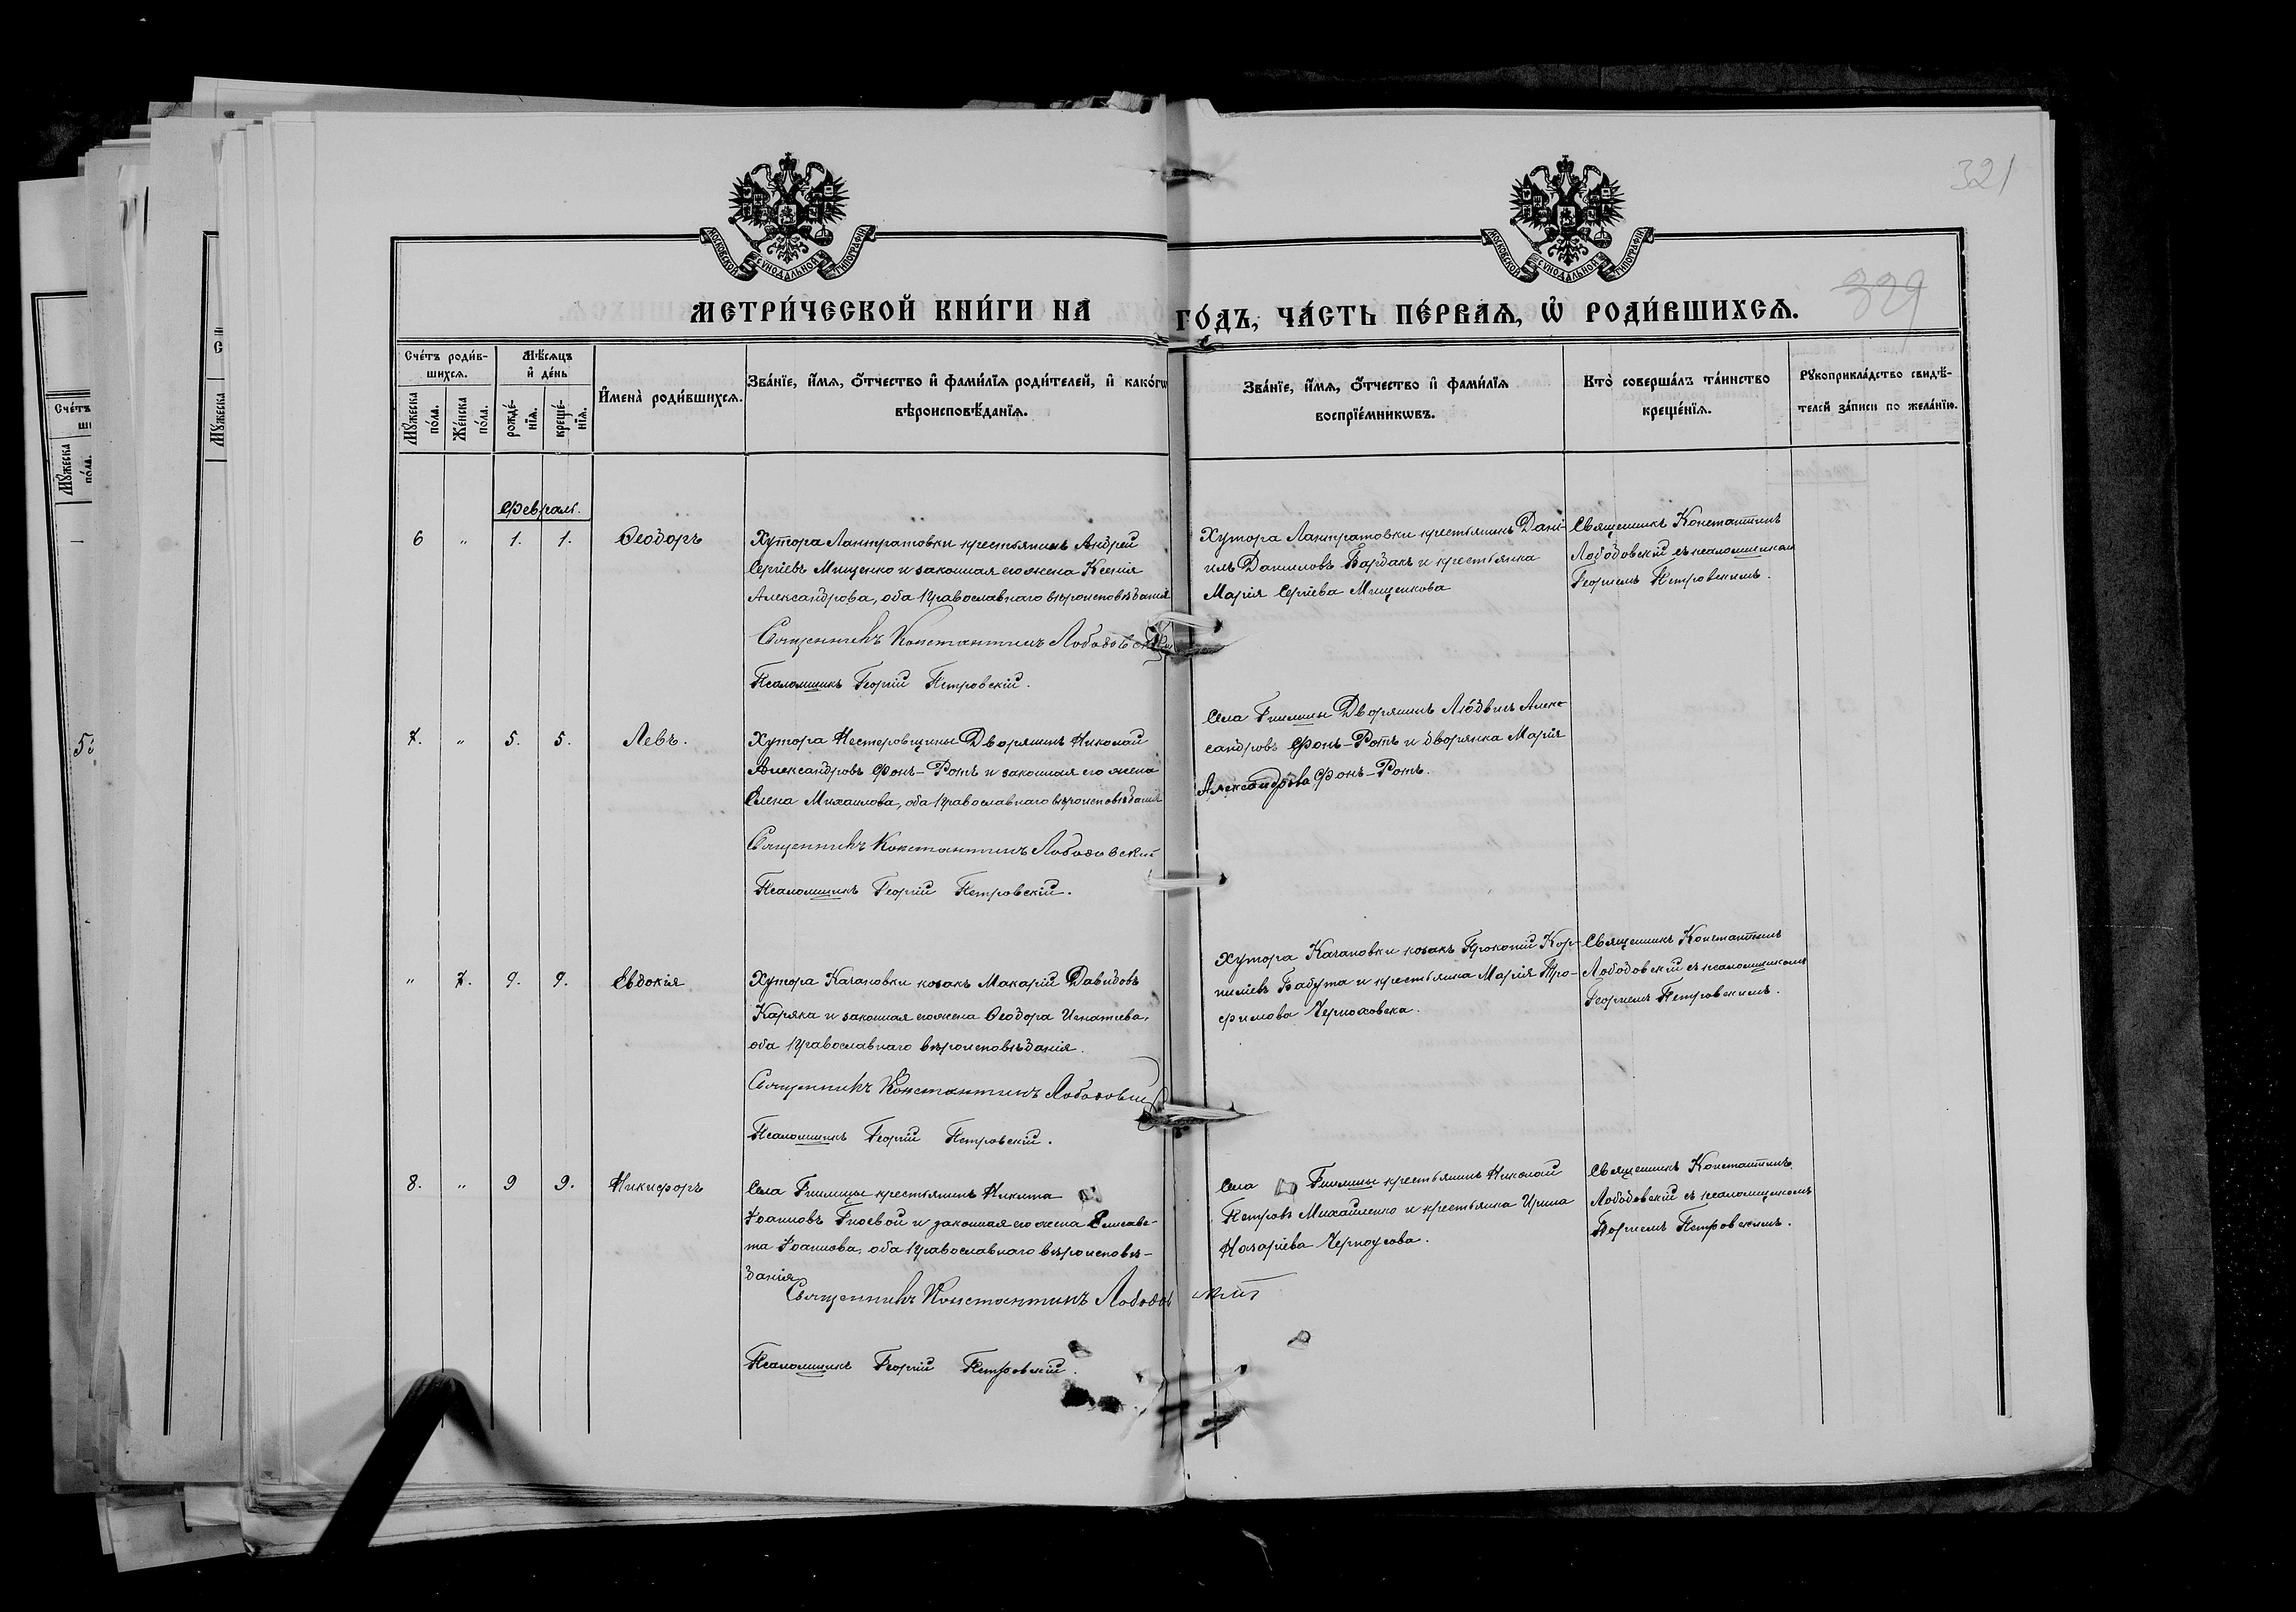 321
329
МОСКОВСКОЙ СѴНОДАЛЬНОЙ ТИПОГРАФІИ
МОСКОВСКОЙ СѴНОДАЛЬНОЙ ТИПОГРАФІИ
МЕТРИ́ЧЕСКОЙ КНИ́ГИ НА ГО́ДЪ, ЧА́СТЬ ПЕ́РВАѦ, Ѡ҆ РОДИ́ВШИХСѦ.
Сче́тъ роди́в-
шихсѧ.
Мꙋ́жеска по́ла.
Же́нска по́ла.
Мѣ́сѧцъ
и҆ де́нь
рожде́-
нїѧ.
креще́-
нїѧ.
И҆мена̀ роди́вшихсѧ.
Зва́нїе, и҆́мѧ, ѻ҆́тчество и҆ фами́лїѧ роди́телей, и҆ како́гѡ
вѣроисповѣ́данїѧ.
Зва́нїе, и҆́мѧ, ѻ҆́тчество и҆ фами́лїѧ
воспрїе́мникѡвъ.
Кто̀ соверша́лъ та́инство
креще́нїѧ.
Рꙋкоприкла́дство свидѣ́-
телей за́писи по жела́нїю.
Февраль.
6 " 1. 1. Ѳеодоръ
Хутора Лантратовки крестьянинъ Андрей
Сергіевъ Мищенко и законная его жена Ксенія
Александрова, оба православнаго вѣроисповѣданія
Священникъ Константинъ Лободовскій
Псаломщикъ Георгій Петровскій.
Хутора Лантратовки крестьянинъ Дані-
илъ Даниловъ Бардакъ и крестьянка
Марія Сергіева Мищенкова
Священникъ Константинъ
Лободовскій съ псаломщикомъ
Георгіемъ Петровскимъ.
7. " 5. 5. Левъ.
Хутора Нестеровщины Дворянинъ Николай
Александровъ Фонъ-Ротъ и законная его жена
Елена Михаилова, оба православнаго вѣроисповѣданія
Священникъ Константинъ Лободовскій
Псаломщикъ Георгій Петровскій.
Села Гнилицы Дворянинъ Людвигъ Алекс
сандровъ Фонъ-Ротъ и дворянка Марія
Александрова Фонъ-Ротъ.
" 7. 9. 9. Евдокія
Хутора Качановки козакъ Макарій Давидовъ
Каряка и законная его жена Ѳеодора Игнатіева,
оба православнаго вѣроисповѣданія.
Священникъ Константинъ Лободовскій
Псаломщикъ Георгій Петровскій.
Хутора Качановки козакъ Прокопій Кор-
ниліевъ Бабута и крестьянка Марія Тро-
фимова Черноховска.
Священникъ Константинъ
Лободовскій съ псаломщикомъ
Георгіемъ Петровскимъ.
8. " 9 9. Никифоръ
Села Гнилицы крестьянинъ Никита
Іоанновъ Гноевой и законная его жена Елисаве-
та Іоаннова, оба православнаго вѣроисповѣ-
данія
Священникъ Константинъ Лободовскій
Псаломщикъ Георгій Петровскій.
Села Гнилицы крестьянинъ Николай
Петровъ Михайленко и крестьянка Ирина
Назаріева Черноусова.
Священникъ Константинъ
Лободовскій съ псаломщикомъ
Георгіемъ Петровскимъ.